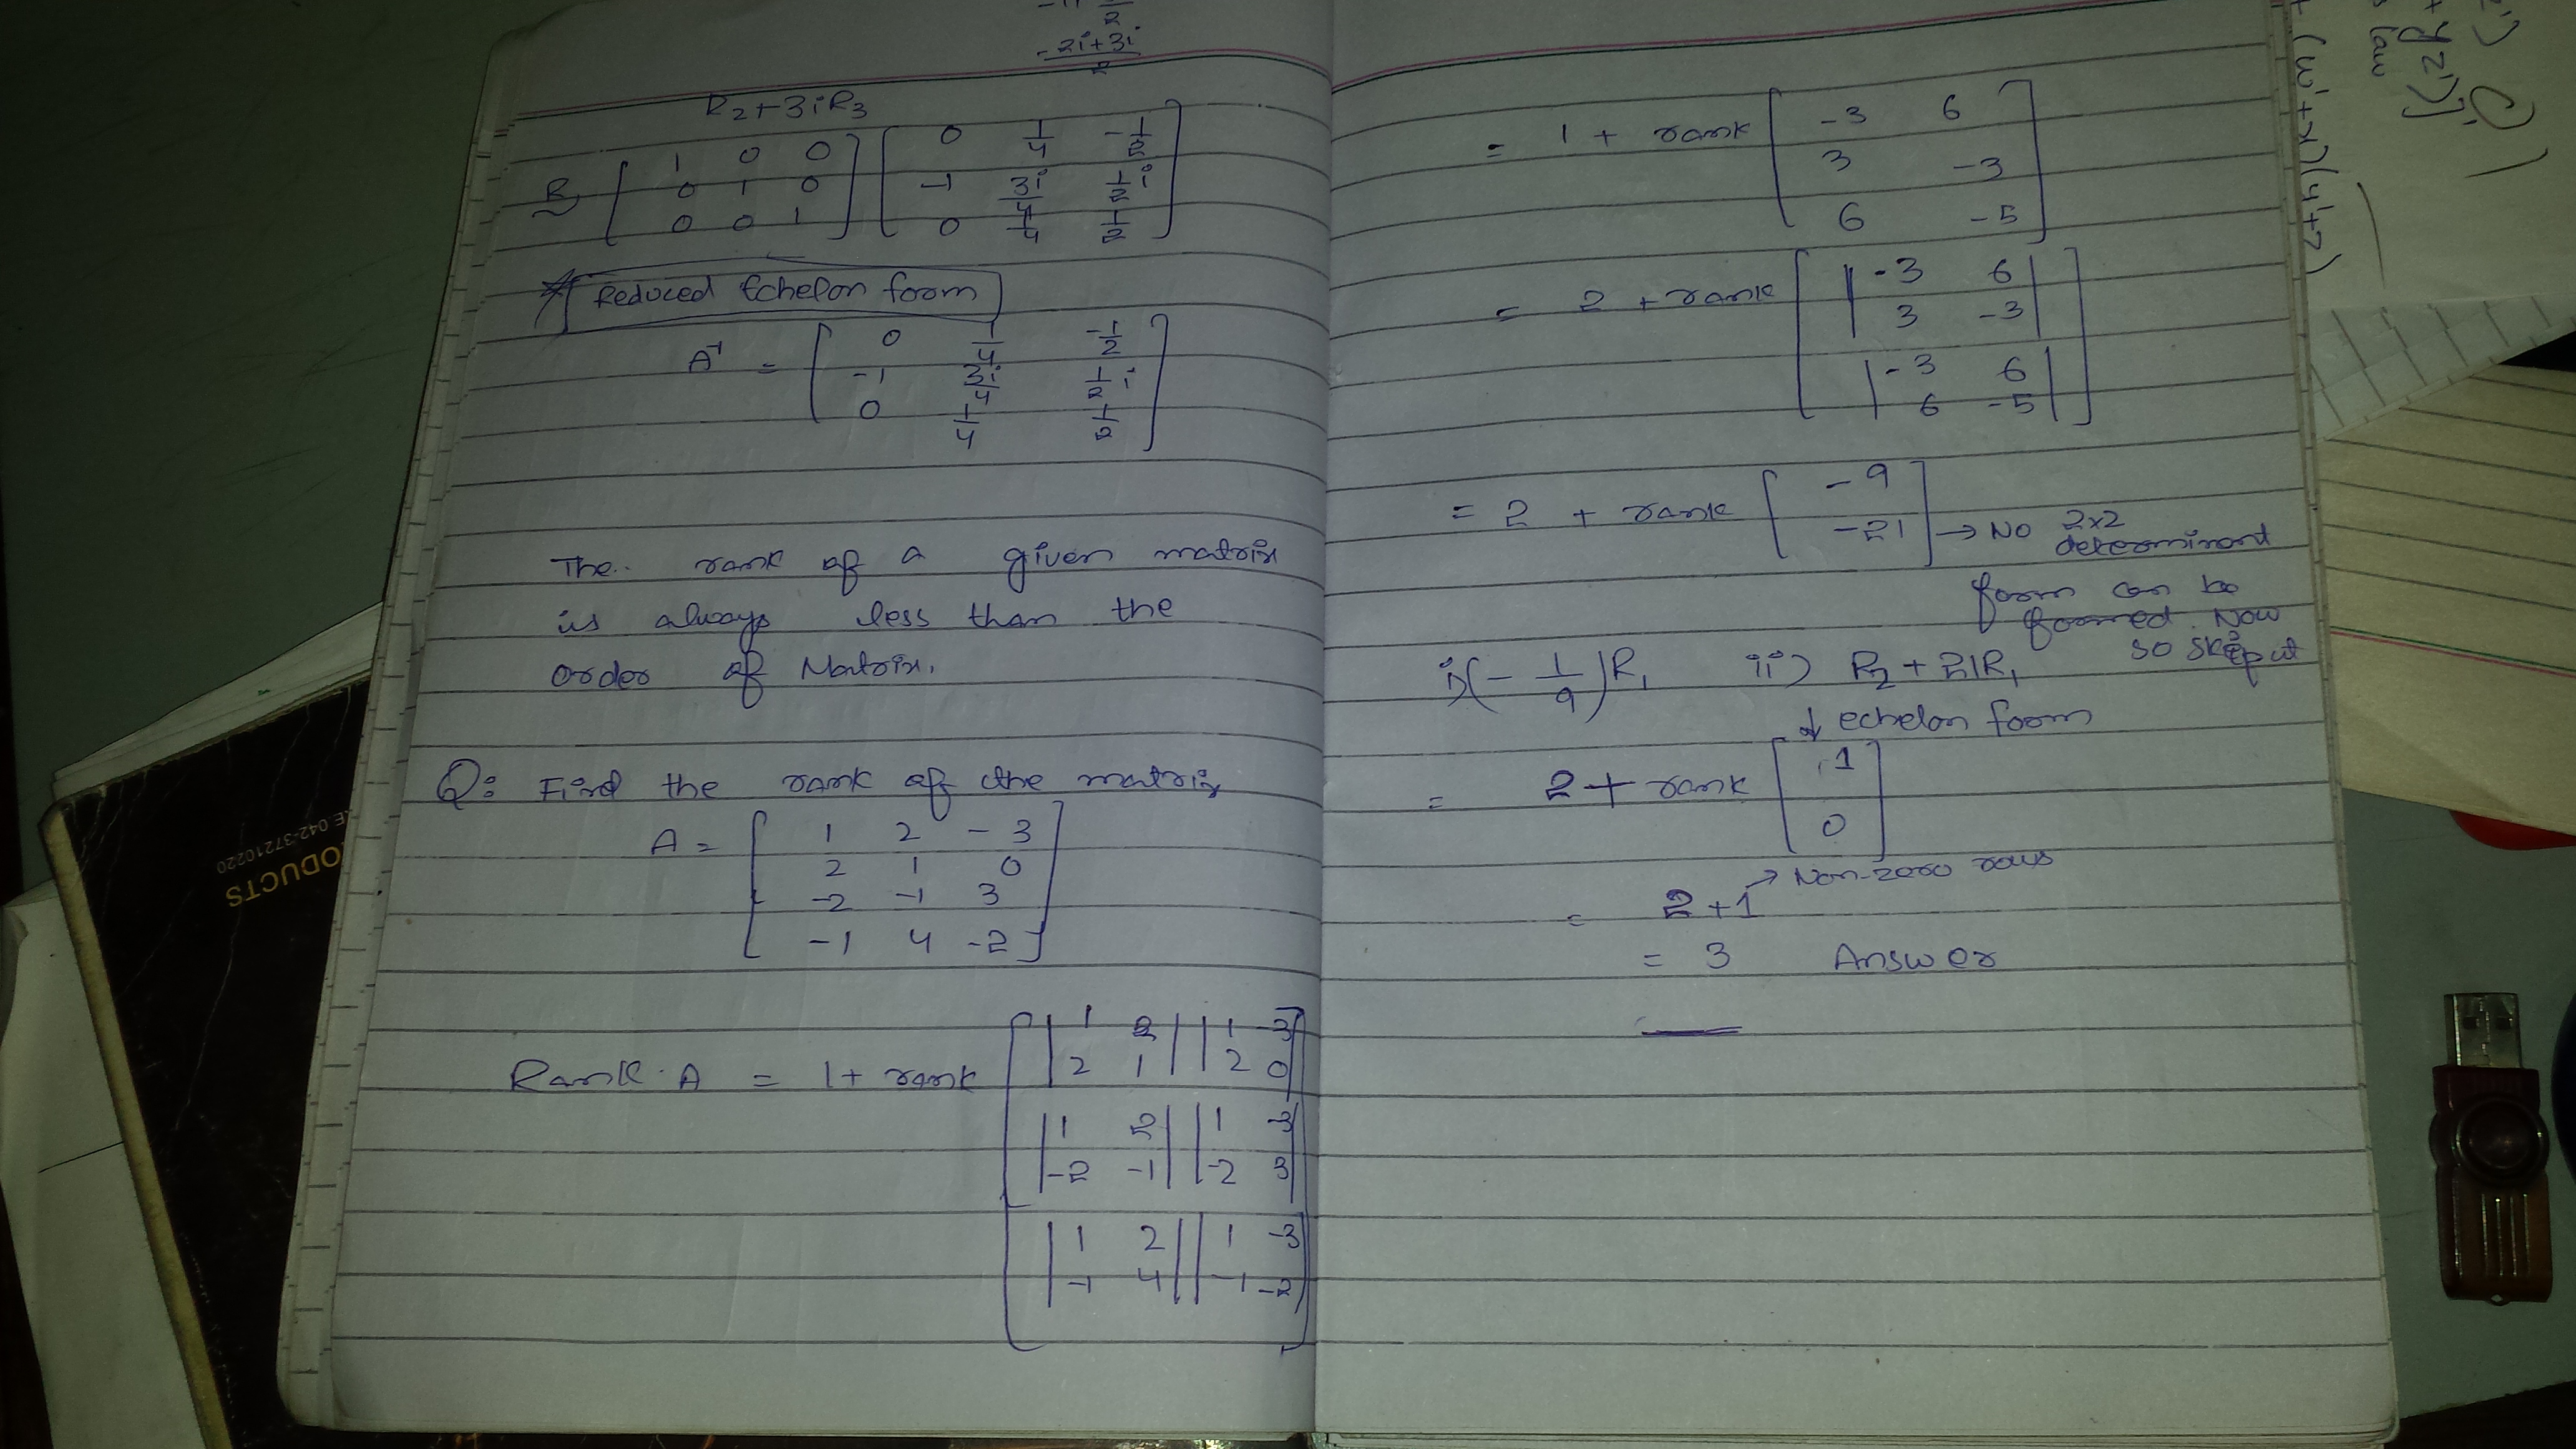 -2i+3i
2
R2+3iR3
R [ 1 0 0 ] [ 0 1/4 -1/2 ]
[ 0 1 0 ] [ -1 3i/4 1/2 i ]
[ 0 0 1 ] [ 0 1/4 1/2 ]
Reduced Echelon form
A⁻¹ = [ 0 1/4 -1/2 ]
[ -1 3i/4 1/2 i ]
[ 0 1/4 1/2 ]
The rank of a given matrix
is always less than the
order of Matrix.
Q: Find the rank of the matrix
A = [ 1 2 -3 ]
[ 2 1 0 ]
[ -2 -1 3 ]
[ -1 4 -2 ]
Rank A = 1 + rank
| 1 2 | | 1 -3 |
| 2 1 | | 2 0 |
| 1 2 | | 1 -3 |
| -2 -1 | | -2 3 |
| 1 2 | | 1 -3 |
| -1 4 | | -1 -2 |
= 1 + rank [ -3 6 ]
[ 3 -3 ]
[ 6 -5 ]
= 2 + rank
| -3 6 |
| 3 -3 |
| -3 6 |
| 6 -5 |
= 2 + rank [ -9 ]
[ -21 ] → No 2x2
determinant
form can be
formed. Now
so skip it
i) (-1/9)R1 ii) R2 + 21R1
↓ echelon form
= 2 + rank [ 1 ]
[ 0 ]
→ Non-zero rows
= 2+1
= 3 Answer
(w'+x')(y'+z)
law
+yz')]
ODUCTS
E 042-37210220